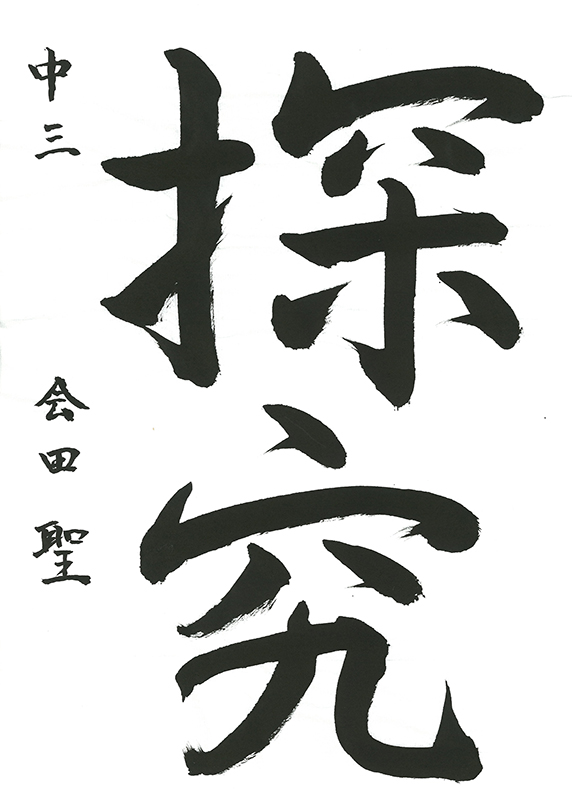 探究
中三 会田聖